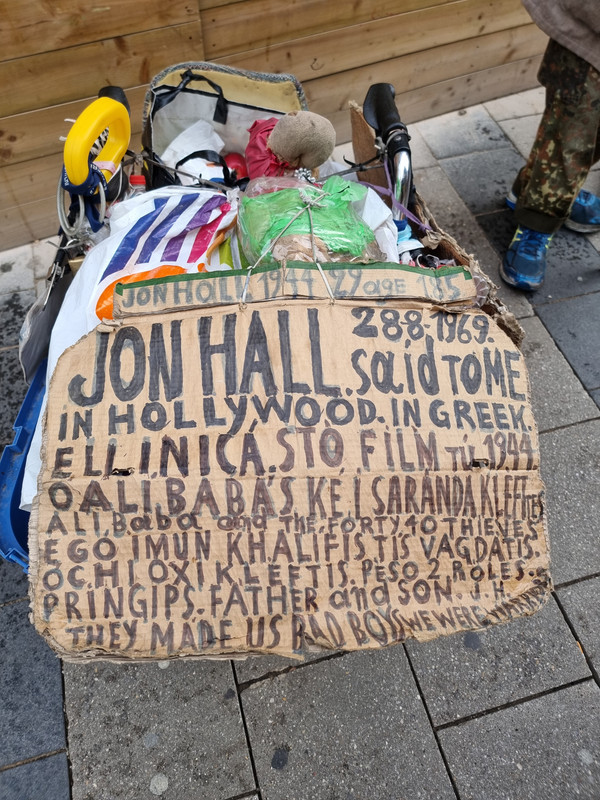 JON HALL 1944 29 age 185
JON HALL 28-8-1969.
said TO ME
IN HOLLYWOOD. IN GREEK.
ELLINICÁ. STO FILM TU 1944
O ALI BABÁS KE I SARÁNDA KLEFTES
ALI. Baba and THE FORTY 40 THIEVES
EGO IMUN KHALIFIS TIS VAGDATIS.
OCHI OXI KLEFTIS. PESO 2 ROLES.
PRINGIPS. FATHER and SON. J.H.
THEY MADE US BAD BOYS WE WERE